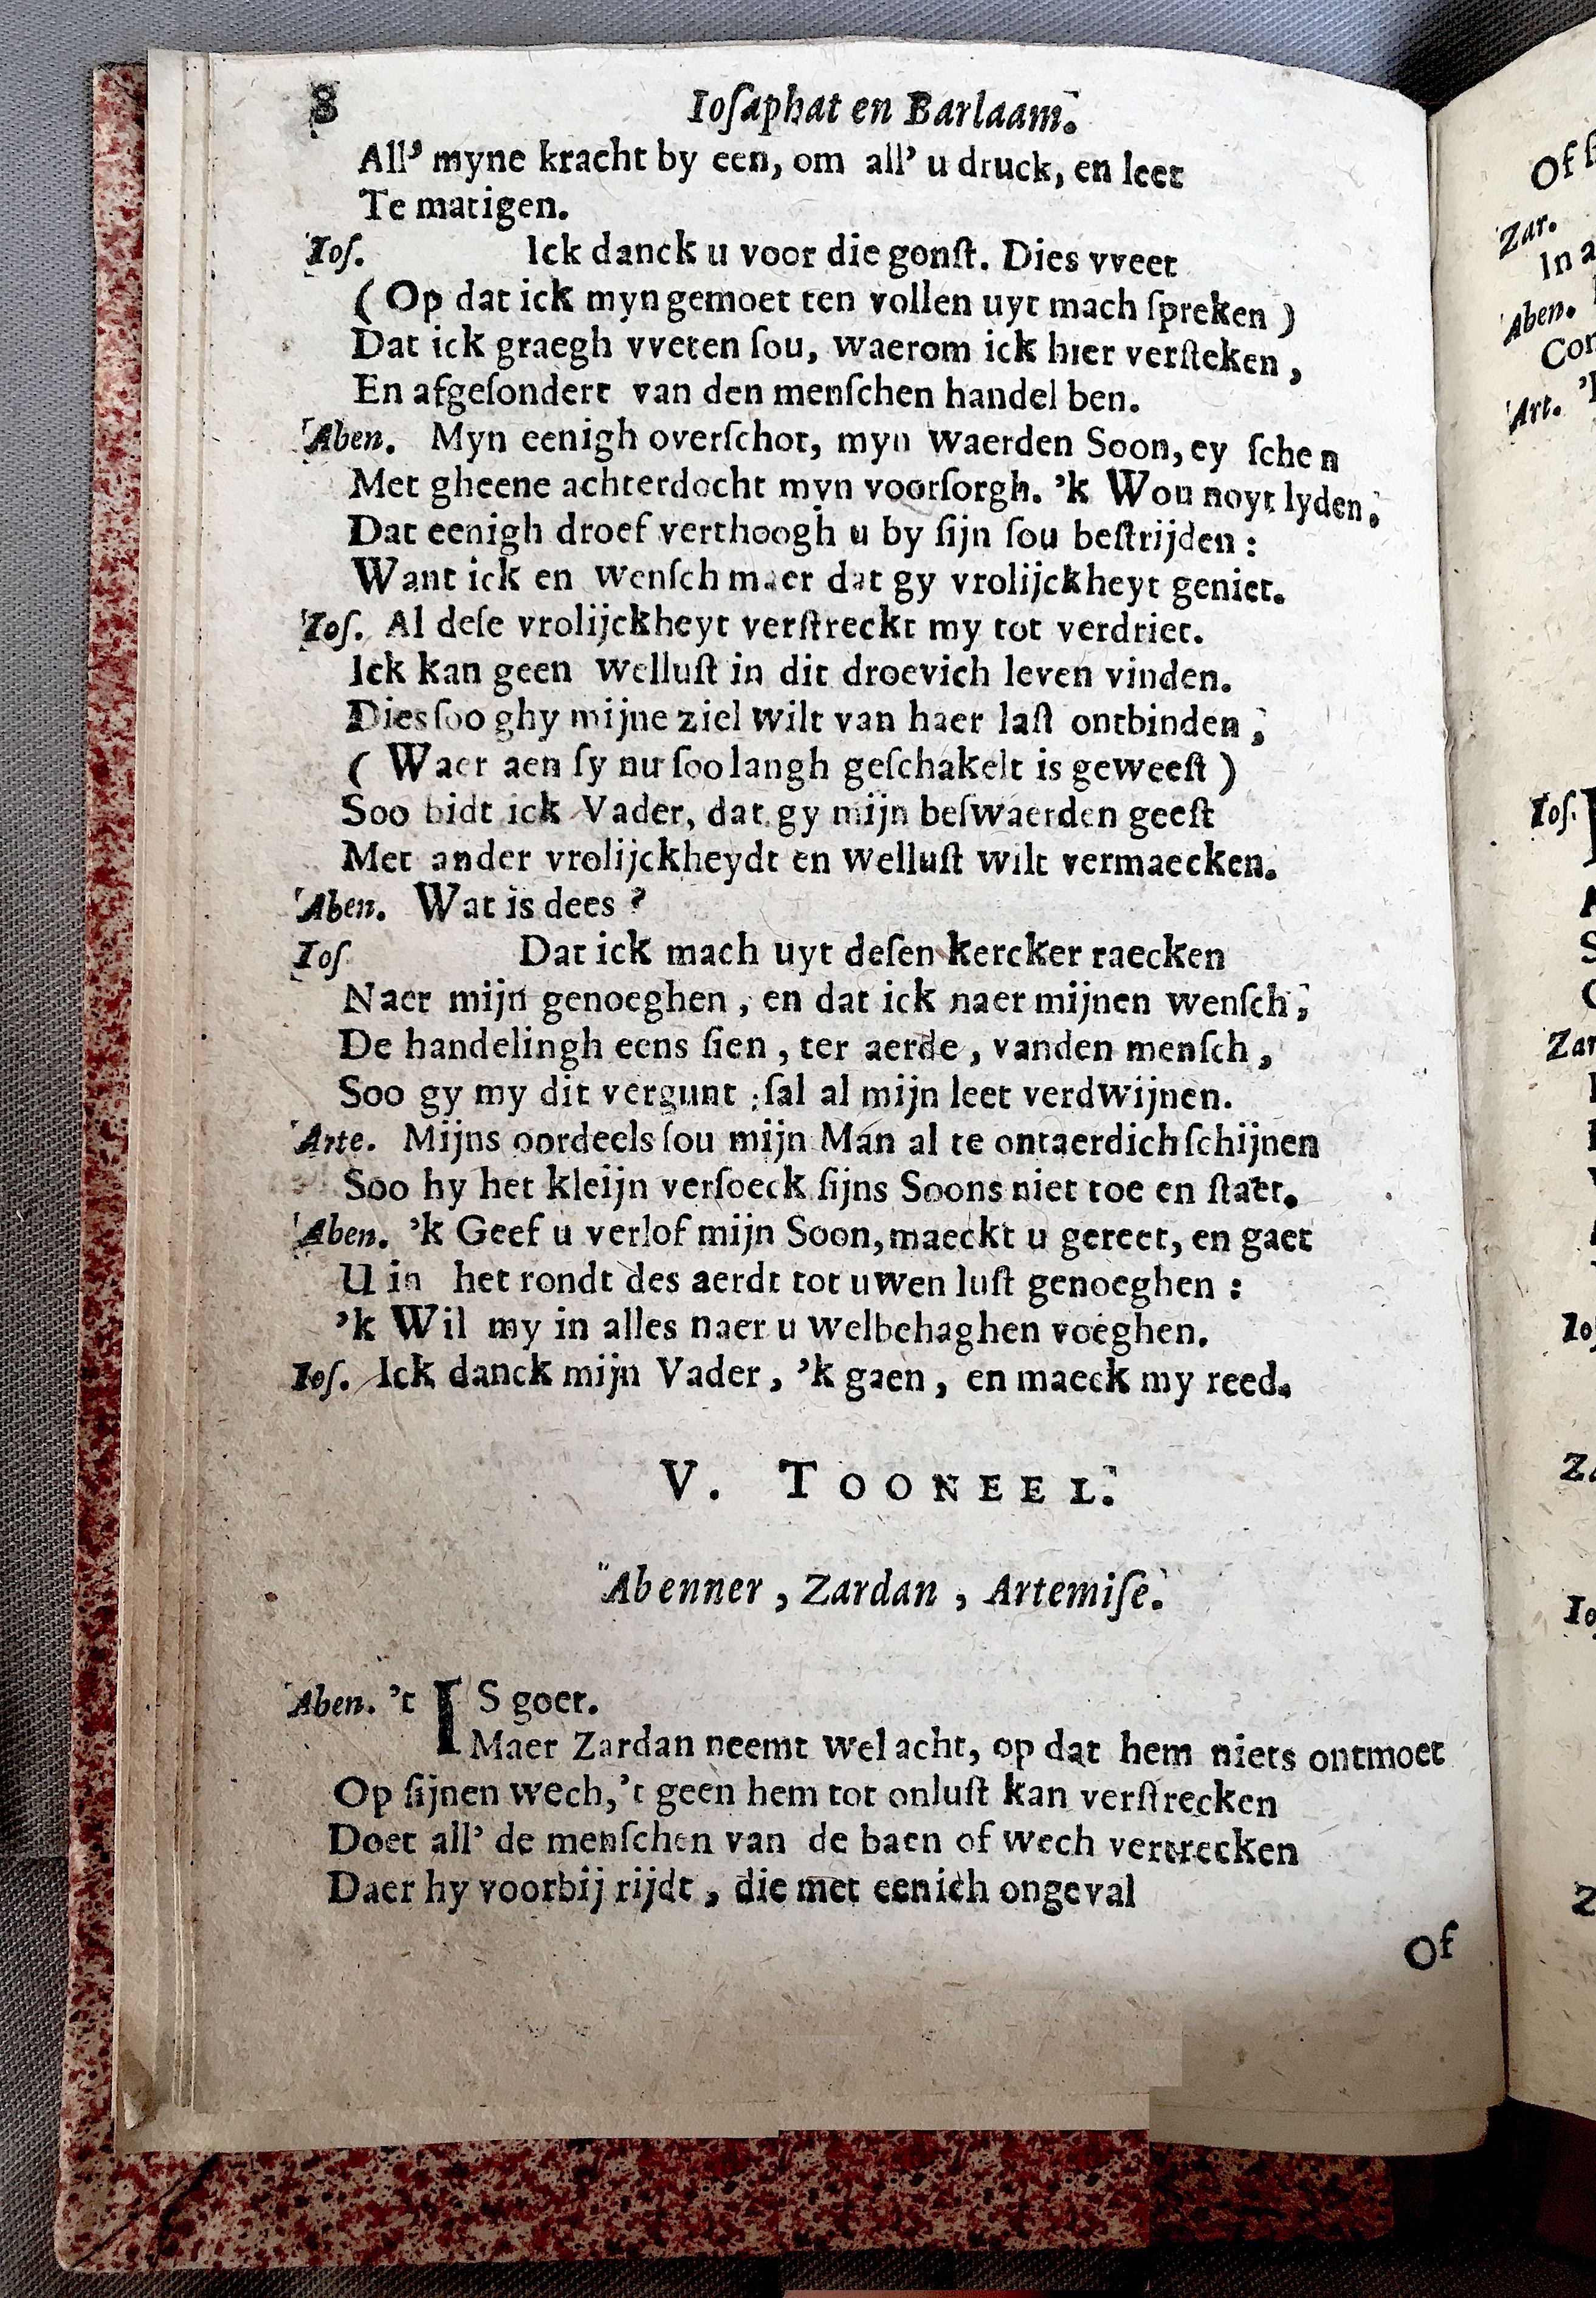 8 Ioſaphat en Barlaam.
All' myne kracht by een, om all' u druck, en leet
Te matigen.
Ioſ. Ick danck u voor die gonſt. Dies vveet
( Op dat ick myn gemoet ten vollen uyt mach ſpreken )
Dat ick graegh vveten ſou, waerom ick hier verſteken,
En afgeſondert van den menſchen handel ben.
Aben. Myn eenigh overſchot, myn waerden Soon, ey ſchen
Met gheene achterdocht myn voorſorgh. 'k Wou noyt lyden.
Dat eenigh droef verthoogh u by ſijn ſou beſtrijden :
Want ick en wenſch maer dat gy vrolijckheyt geniet.
Ioſ. Al deſe vrolijckheyt verſtreckt my tot verdriet.
Ick kan geen welluſt in dit droevich leven vinden.
Dies ſoo ghy mijne ziel wilt van haer laſt ontbinden,
( Waer aen ſy nu ſoo langh geſchakelt is geweeſt )
Soo bidt ick Vader, dat gy mijn beſwaerden geeſt
Met ander vrolijckheydt en welluſt wilt vermaecken.
Aben. Wat is dees ?
Ioſ Dat ick mach uyt deſen kercker raecken
Naer mijn genoeghen, en dat ick naer mijnen wenſch,
De handelingh eens ſien, ter aerde, vanden menſch,
Soo gy my dit vergunt ; ſal al mijn leet verdwijnen.
Arte. Mijns oordeels ſou mijn Man al te ontaerdich ſchijnen
Soo hy het kleijn verſoeck ſijns Soons niet toe en ſtaet.
Aben. 'k Geef u verlof mijn Soon, maeckt u gereet, en gaet
U in het rondt des aerdt tot uwen luſt genoeghen :
'k Wil my in alles naer u welbehaghen voeghen.
Ioſ. Ick danck mijn Vader, 'k gaen, en maeck my reed.
V. TOONEEL.
Abenner, Zardan, Artemiſe.
Aben. 't IS goet.
Maer Zardan neemt wel acht, op dat hem niets ontmoet
Op ſijnen wech, 't geen hem tot onluſt kan verſtrecken
Doet all' de menſchen van de baen of wech vertrecken
Daer hy voorbij rijdt, die met eenich ongeval
Of
Zar.
In
Aben.
Art.
Ioſ.